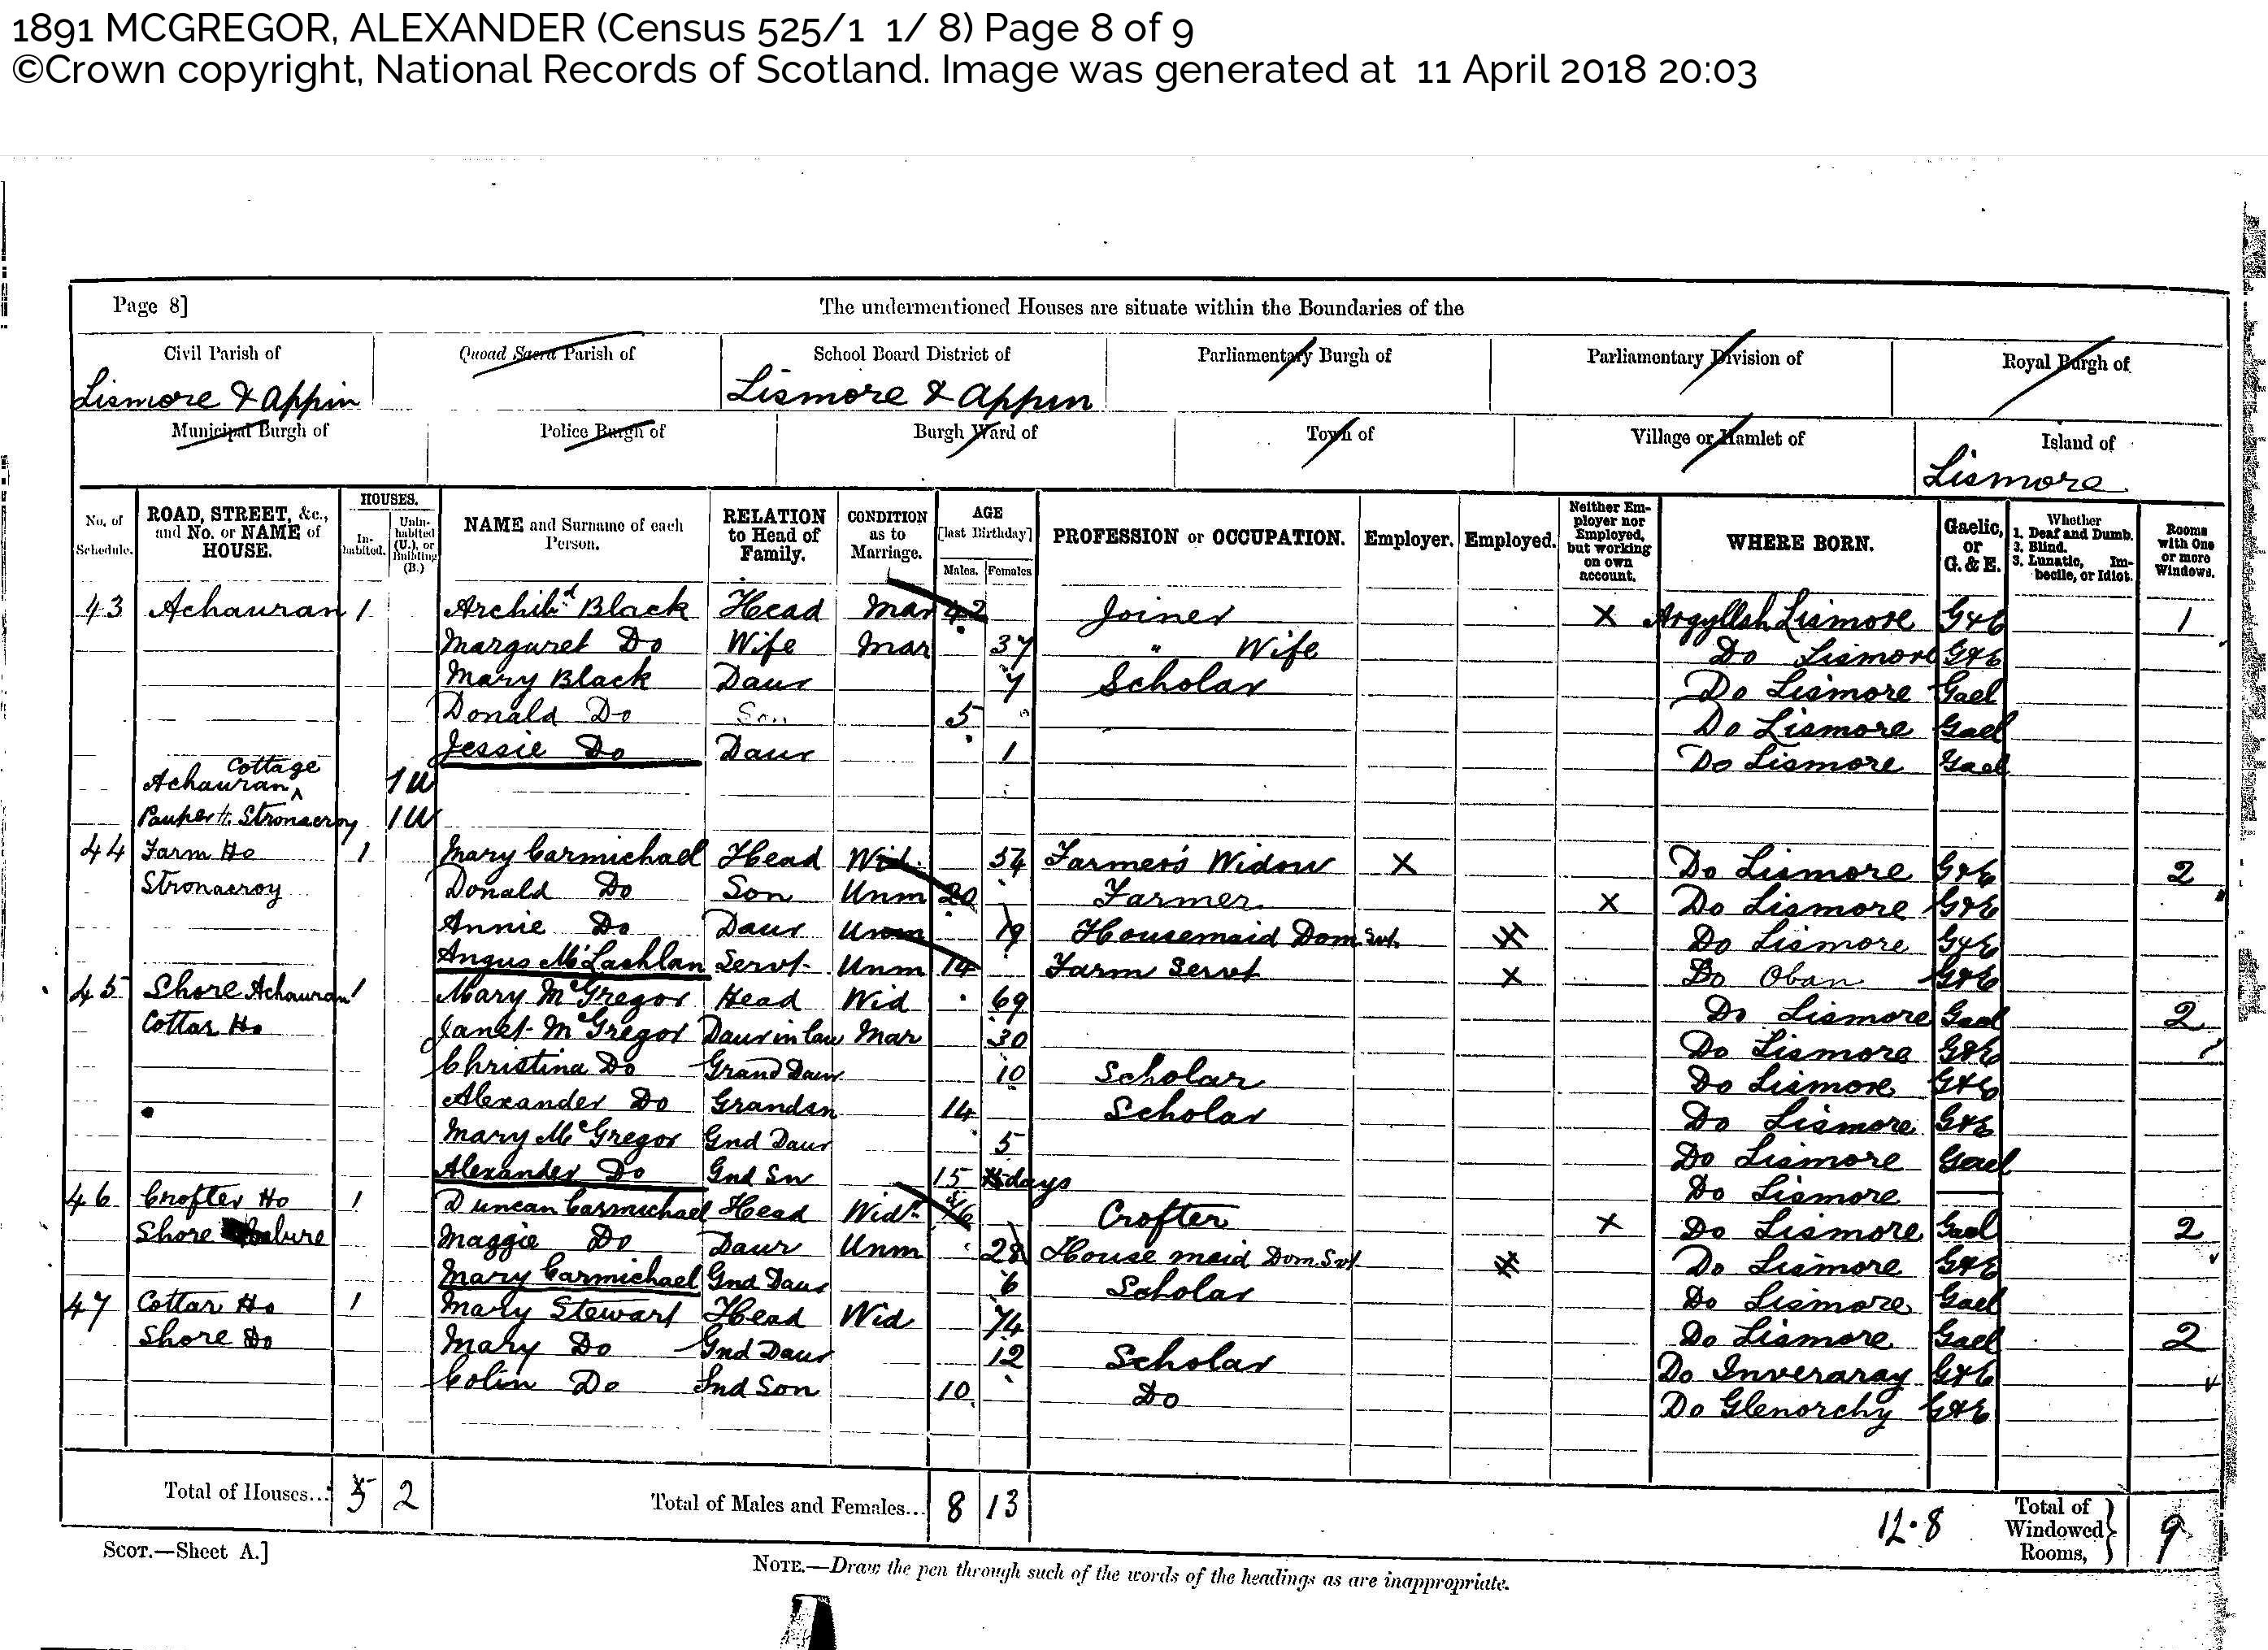 1891 MCGREGOR, ALEXANDER (Census 525/1 1/ 8) Page 8 of 9
©Crown copyright, National Records of Scotland. Image was generated at 11 April 2018 20:03
Page 8] The undermentioned Houses are situate within the Boundaries of the
Civil Parish of Quoad Sacra Parish of School Board District of Parliamentary Burgh of Parliamentary Division of Royal Burgh of
Lismore & Appin Lismore & Appin
Municipal Burgh of Police Burgh of Burgh Ward of Town of Village or Hamlet of Island of
Lismore
No. of Schedule. ROAD, STREET, &c., and No. or NAME of HOUSE. HOUSES. In-habited. Unin-habited (U.), or Building (B.) NAME and Surname of each Person. RELATION to Head of Family. CONDITION as to Marriage. AGE [last Birthday] Males. Females PROFESSION or OCCUPATION. Employer. Employed. Neither Em-ployer nor Employed, but working on own account. WHERE BORN. Gaelic, or G. & E. Whether 1. Deaf and Dumb. 2. Blind. 3. Lunatic, Im-becile, or Idiot. Rooms with One or more Windows.
43 Achauran 1 Archibd Black Head Mar 42 Joiner X Argyllsh Lismore G&E 1
Margaret Do Wife Mar 37 " Wife Do Lismore G&E
Mary Black Daur 7 Scholar Do Lismore Gael
Donald Do Son 5 Do Lismore Gael
Jessie Do Daur 1 Do Lismore Gael
Achauran Cottage 1U
Pauper H. Stronacroy 1U
44 Farm Ho 1 Mary Carmichael Head Wid. 54 Farmer's Widow X Do Lismore G&E 2
Stronacroy Donald Do Son Unm 20 Farmer X Do Lismore G&E
Annie Do Daur Unm 19 Housemaid Dom Svt. Do Lismore G&E
Angus McLachlan Servt Unm 14 Farm Servt X Do Oban G&E
45 Shore Achauran 1 Mary McGregor Head Wid 69 Do Lismore Gael 2
Cottar Ho Janet McGregor Daur in law Mar 30 Do Lismore G&E
Christina Do Grand Daur 10 Scholar Do Lismore G&E
Alexander Do Grandsn 14 Scholar Do Lismore G&E
Mary McGregor Gnd Daur 5 Do Lismore Gael
Alexander Do Gnd Sn 15 days Do Lismore
46 Crofter Ho 1 Duncan Carmichael Head Widr. Crofter X Do Lismore Gael 2
Shore Maggie Do Daur Unm 28 House maid Dom Svt. Do Lismore G&E
Mary Carmichael Gnd Daur 6 Scholar Do Lismore Gael
47 Cottar Ho 1 Mary Stewart Head Wid 74 Do Lismore Gael 2
Shore Do Mary Do Gnd Daur 12 Scholar Do Inveraray G&E
Colin Do Gnd Son 10 Do Do Glenorchy G&E
Total of Houses... 5 2 Total of Males and Females... 8 13 12.8 Total of Windowed Rooms, 9
SCOT.—Sheet A.]
NOTE.—Draw the pen through such of the words of the headings as are inappropriate.